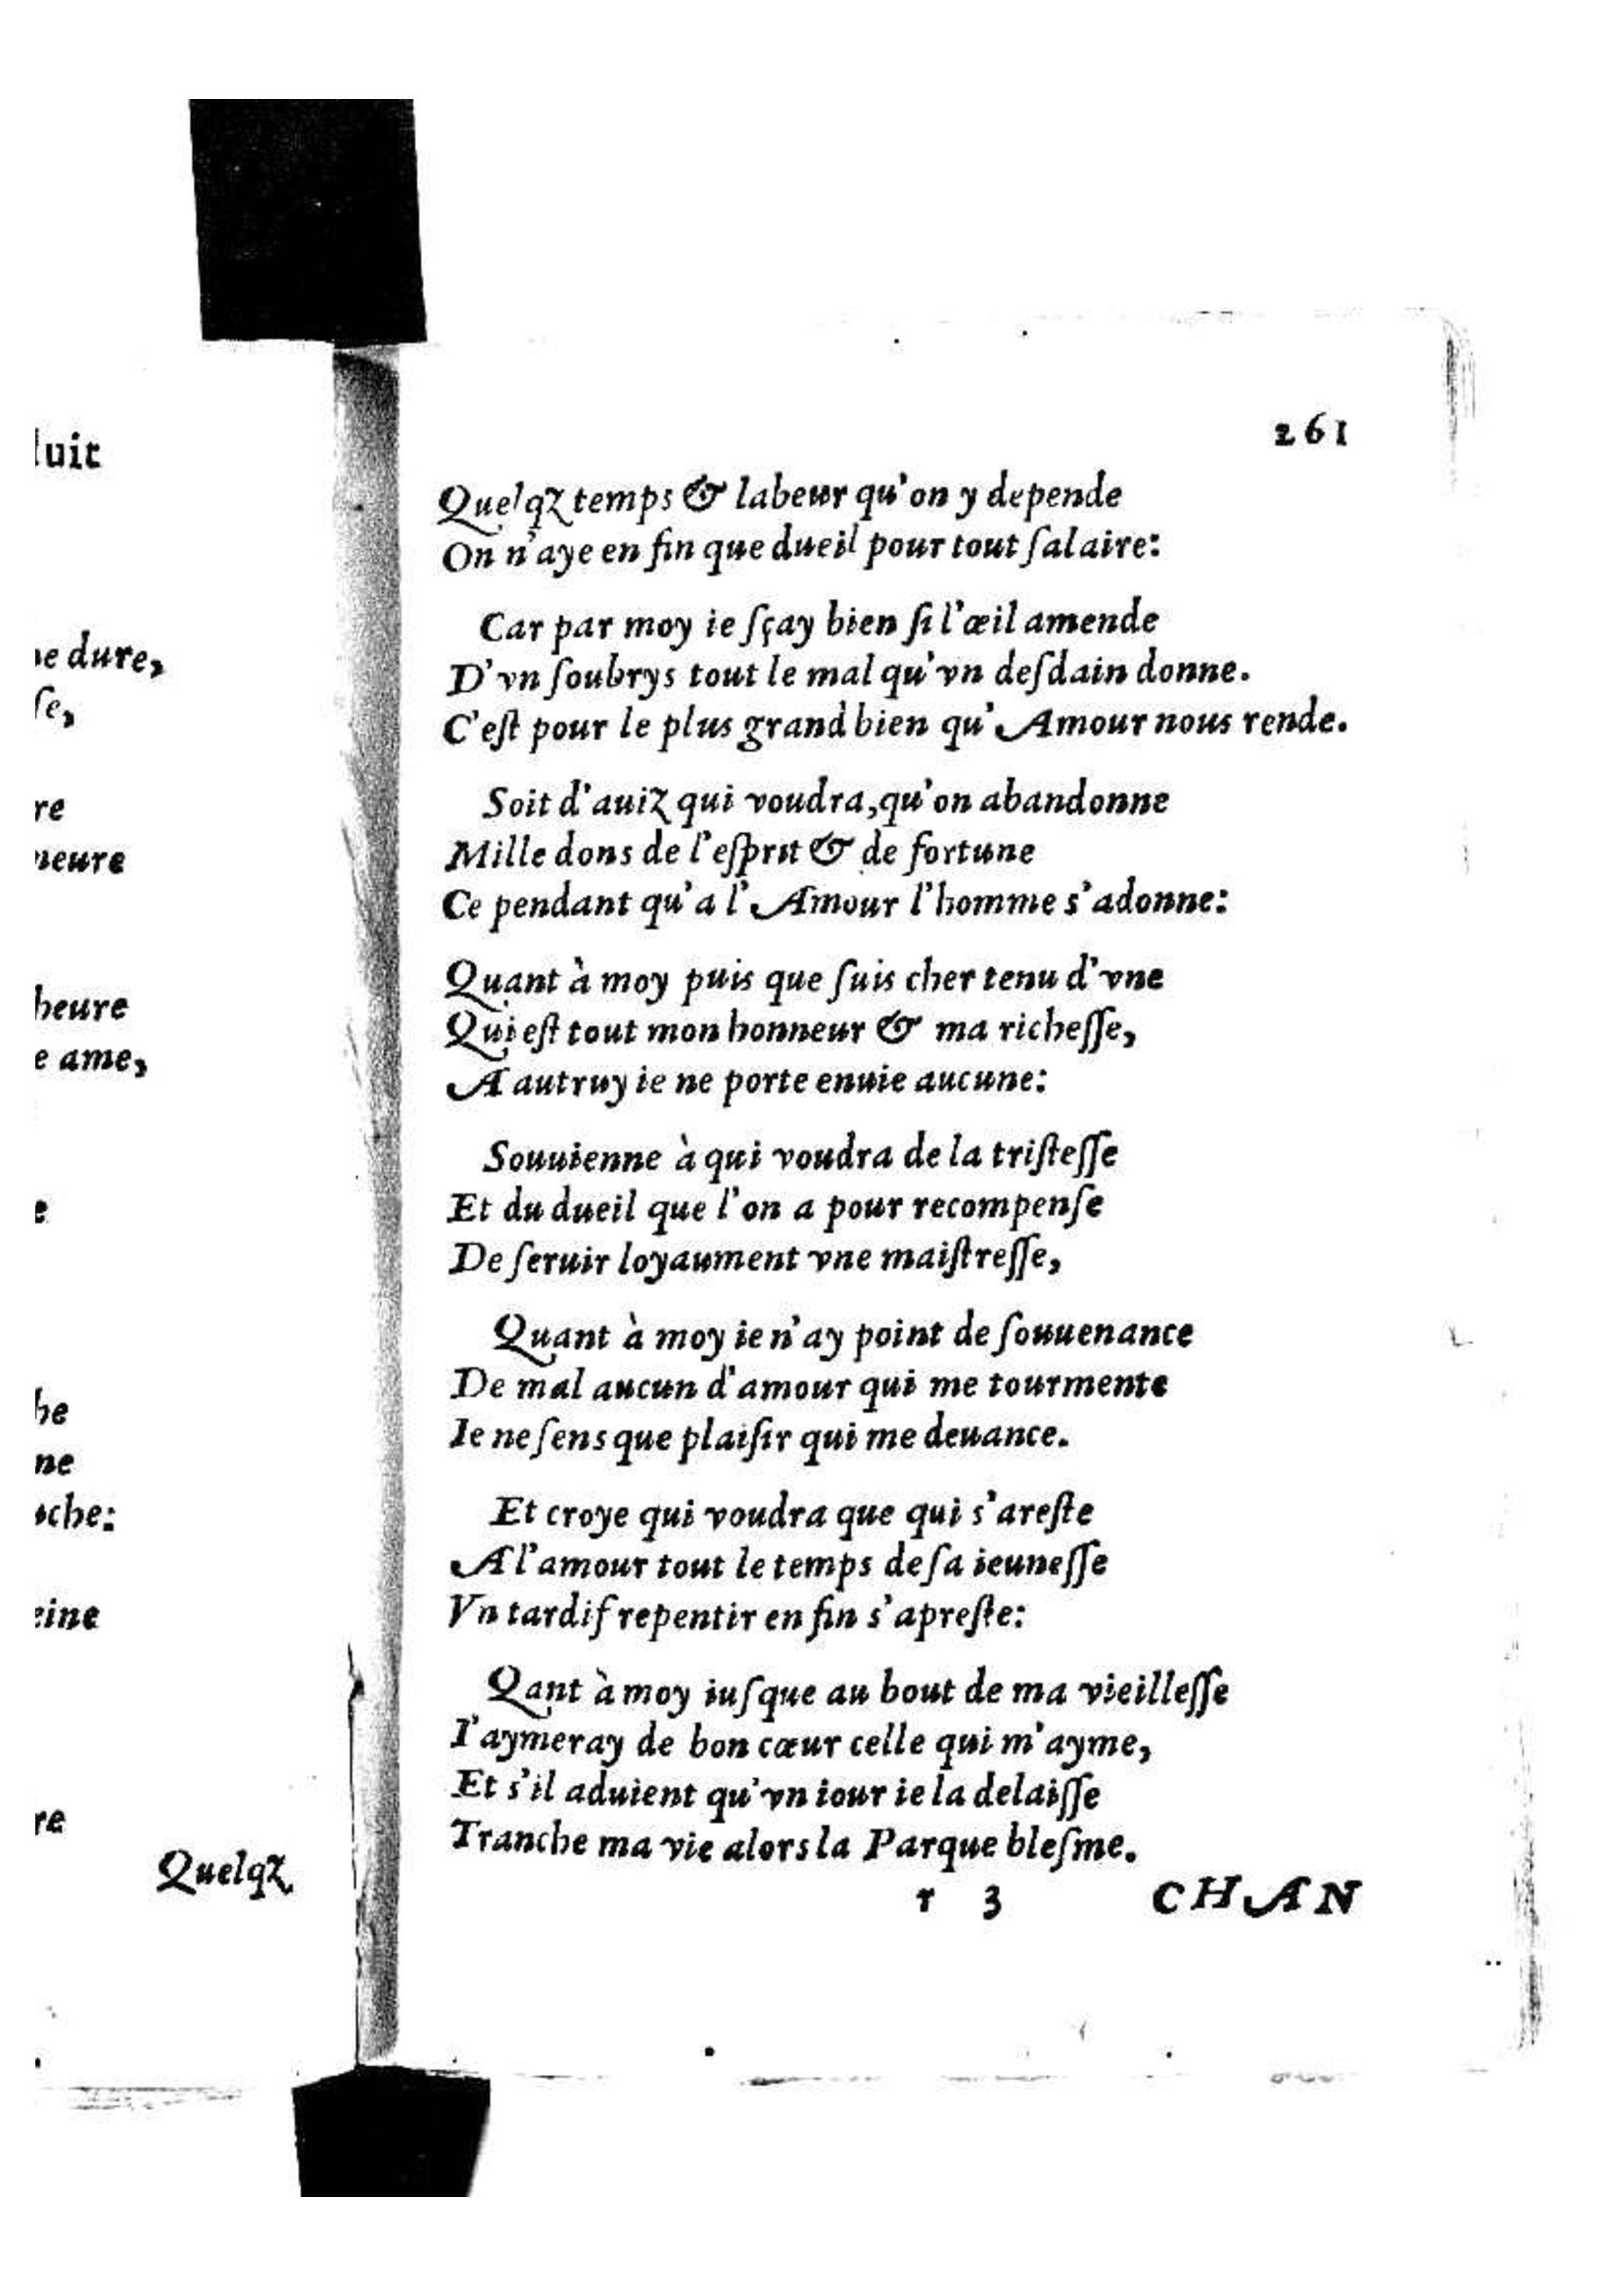 luit
e dure,
ſe,
re
neure
heure
e ame,
e
he
ne
oche:
eine
re
Quelqz
261
Quelqz temps & labeur qu'on y depende
On n'aye en fin que dueil pour tout ſalaire:
Car par moy ie ſçay bien ſi l'œil amende
D'vn ſoubrys tout le mal qu'vn deſdain donne.
C'eſt pour le plus grand bien qu'Amour nous rende.
Soit d'auiz qui voudra, qu'on abandonne
Mille dons de l'eſprit & de fortune
Ce pendant qu'a l'Amour l'homme s'adonne:
Quant à moy puis que ſuis cher tenu d'vne
Qui eſt tout mon honneur & ma richeſſe,
A autruy ie ne porte enuie aucune:
Souuienne à qui voudra de la triſteſſe
Et du dueil que l'on a pour recompenſe
De ſeruir loyaument vne maiſtreſſe,
Quant à moy ie n'ay point de ſouuenance
De mal aucun d'amour qui me tourmente
Ie ne ſens que plaiſir qui me deuance.
Et croye qui voudra que qui s'areſte
A l'amour tout le temps de ſa ieuneſſe
Vn tardif repentir en fin s'apreſte:
Qant à moy iuſque au bout de ma vieilleſſe
I'aymeray de bon cœur celle qui m'ayme,
Et s'il aduient qu'vn iour ie la delaiſſe
Tranche ma vie alors la Parque bleſme.
r 3 CHAN